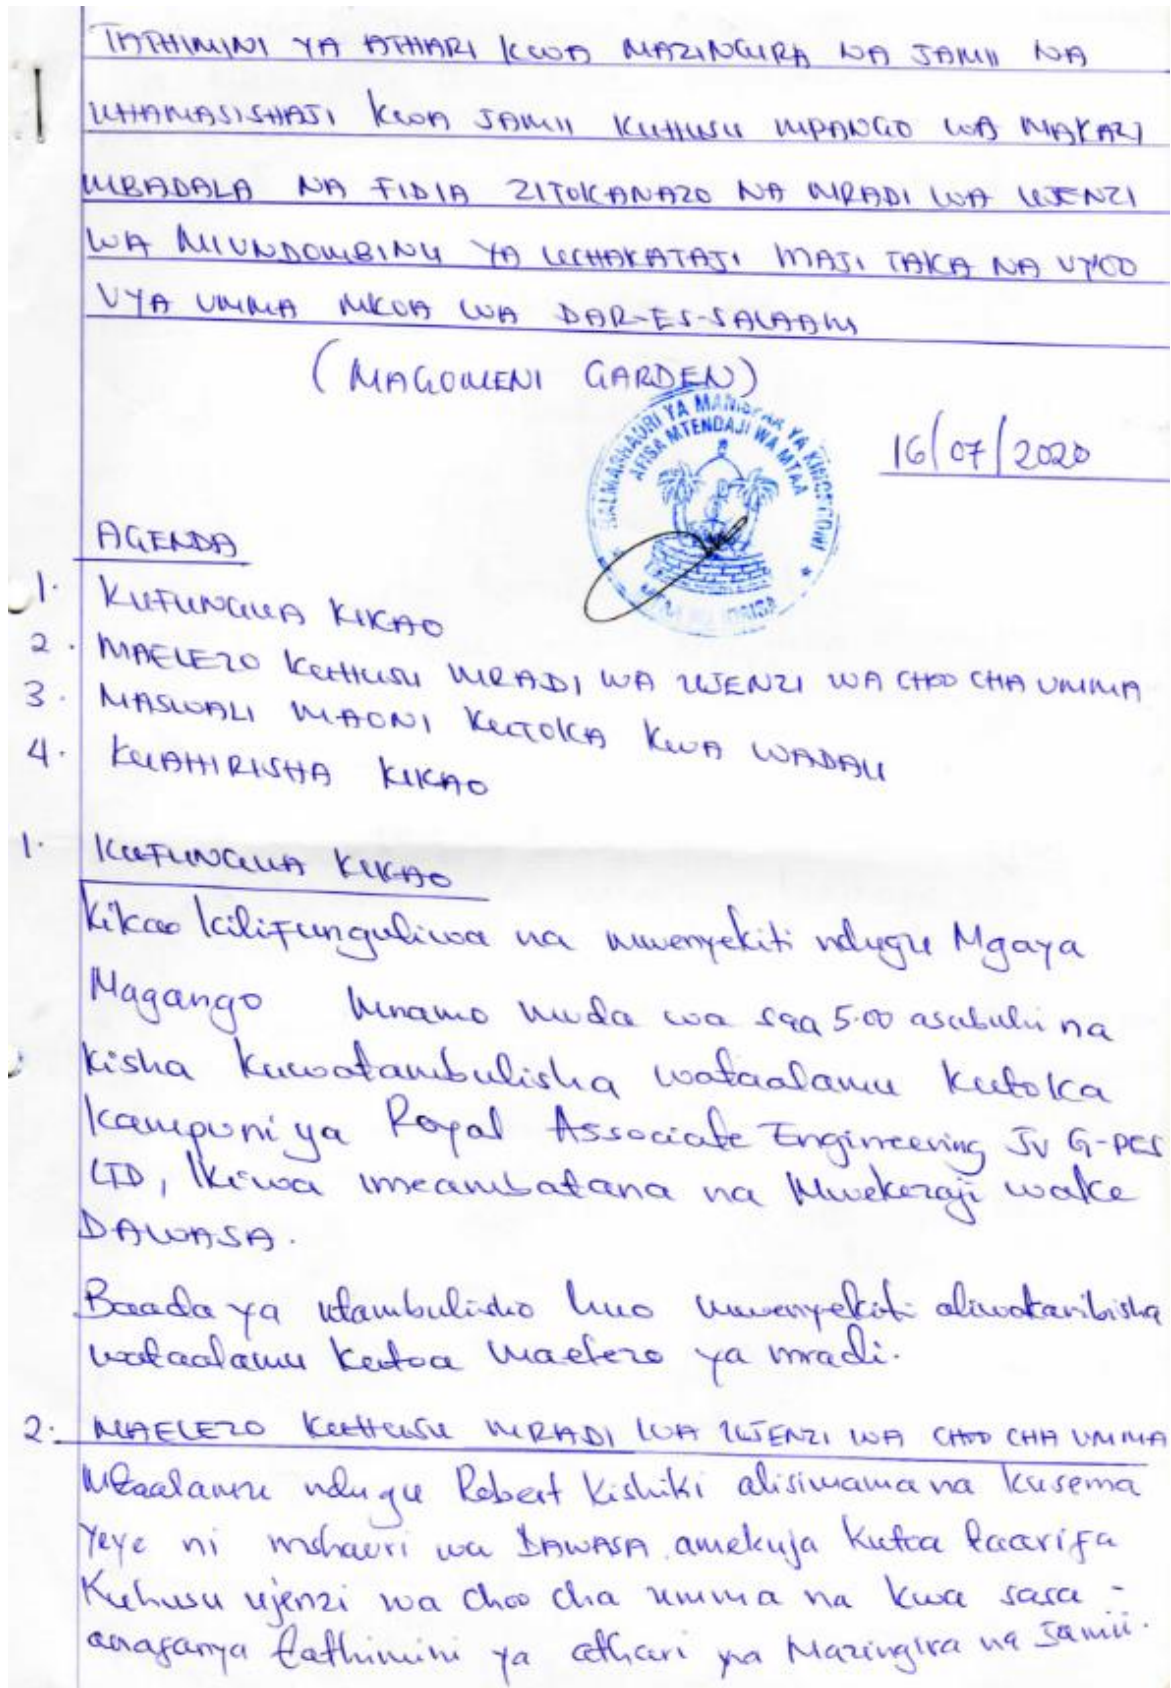 TATHIMINI YA ATHARI KWA MAZINGIRA NA JAMII NA
UHAMASISHAJI KWA JAMII KUHUSU MPANGO WA MAKAZI
MBADALA NA FIDIA ZITOKANAZO NA MRADI WA UJENZI
WA MIUNDOMBINU YA UCHAKATAJI MAJI TAKA NA VYOO
VYA UMMA MKOA WA DAR-ES-SALAAM
(MAGOMENI GARDEN)
HALMASHAURI YA MANISPAA YA KINONDONI
AFISA MTENDAJI WA MTAA
16/07/2020
AGENDA
1. KUFUNGUA KIKAO
2. MAELEZO KUHUSU MRADI WA UJENZI WA CHOO CHA UMMA
3. MASWALI MAONI KUTOKA KWA WADAU
4. KUAHIRISHA KIKAO
1. KUFUNGUA KIKAO
Kikao kilifunguliwa na mwenyekiti ndugu Mgaya
Magango mnamo muda wa saa 5.00 asubuhi na
kisha kuwatambulisha wataalamu kutoka
kampuni ya Royal Associate Engineering JV G-PES
LTD, Ikiwa imeambatana na Mwekezaji wake
DAWASA.
Baada ya utambulisho huo mwenyekiti aliwakaribisha
wataalamu kutoa maelezo ya mradi.
2. MAELEZO KUHUSU MRADI WA UJENZI WA CHOO CHA UMMA
Mtaalamu ndugu Robert Kishiki alisimama na kusema
yeye ni mshauri wa DAWASA amekuja kutoa taarifa
Kuhusu ujenzi wa choo cha umma na kwa sasa -
anafanya tathimini ya athari ya Mazingira na Jamii.